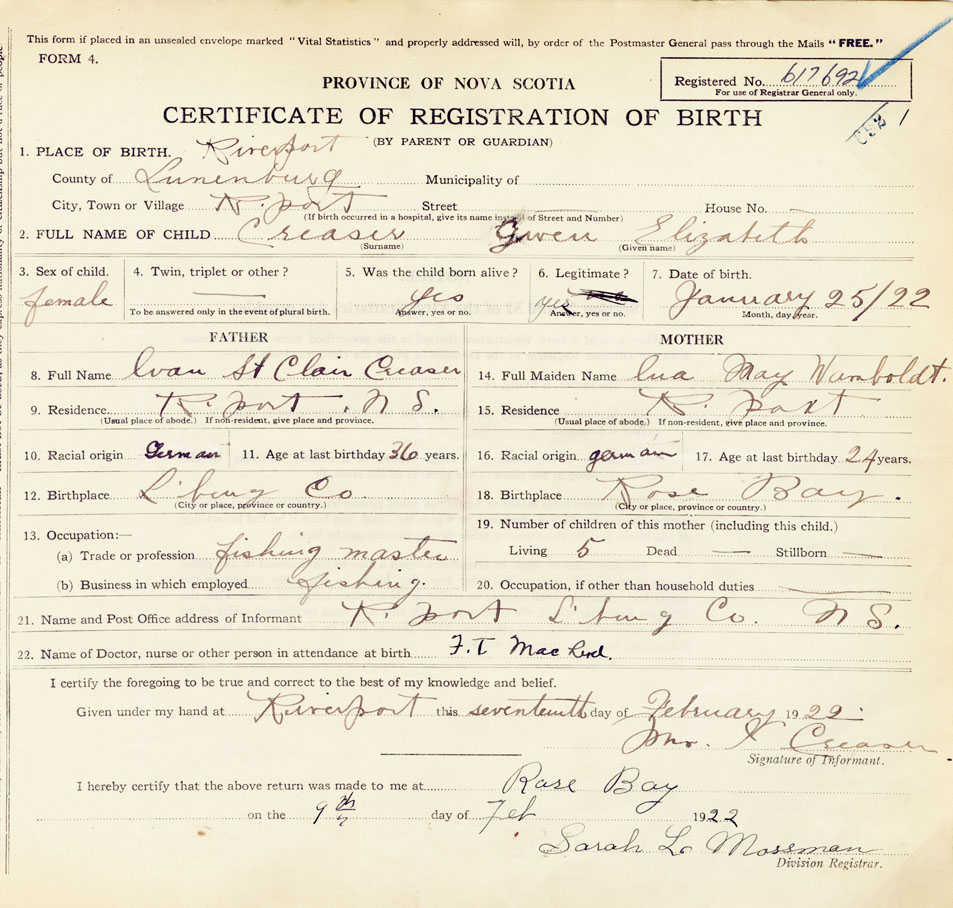 This form if placed in an unsealed envelope marked "Vital Statistics" and properly addressed will, by order of the Postmaster General pass through the Mails "FREE."
FORM 4.
Registered No. 617692
For use of Registrar General only.
PROVINCE OF NOVA SCOTIA
CERTIFICATE OF REGISTRATION OF BIRTH
(BY PARENT OR GUARDIAN)
1. PLACE OF BIRTH. Riverport
County of Lunenburg Municipality of
City, Town or Village R. port Street House No. —
(If birth occurred in a hospital, give its name instead of Street and Number)
2. FULL NAME OF CHILD Creaser Gwen Elizabeth
(Surname) (Given name)
3. Sex of child. 4. Twin, triplet or other? 5. Was the child born alive? 6. Legitimate? 7. Date of birth.
female — yes yes January 25/22
To be answered only in the event of plural birth. Answer, yes or no. Answer, yes or no. Month, day, year.
FATHER MOTHER
8. Full Name Ivan St Clair Creaser 14. Full Maiden Name Iva May Wamboldt.
9. Residence. R. port. N S. 15. Residence R. port
(Usual place of abode.) If non-resident, give place and province. (Usual place of abode.) If non-resident, give place and province.
10. Racial origin German 11. Age at last birthday 36 years. 16. Racial origin german 17. Age at last birthday 24 years.
12. Birthplace L'burg Co. 18. Birthplace Rose Bay.
(City or place, province or country.) (City or place, province or country.)
13. Occupation:— 19. Number of children of this mother (including this child.)
(a) Trade or profession fishing master Living 5 Dead — Stillborn —
(b) Business in which employed fishing. 20. Occupation, if other than household duties
21. Name and Post Office address of Informant R. port L'burg Co. N S.
22. Name of Doctor, nurse or other person in attendance at birth F. T.
I certify the foregoing to be true and correct to the best of my knowledge and belief.
Given under my hand at Riverport this seventeenth day of February 1922.
Creaser
Signature of Informant.
I hereby certify that the above return was made to me at Rose Bay
on the 9th day of Feb 1922
Sarah L. Mossman
Division Registrar.